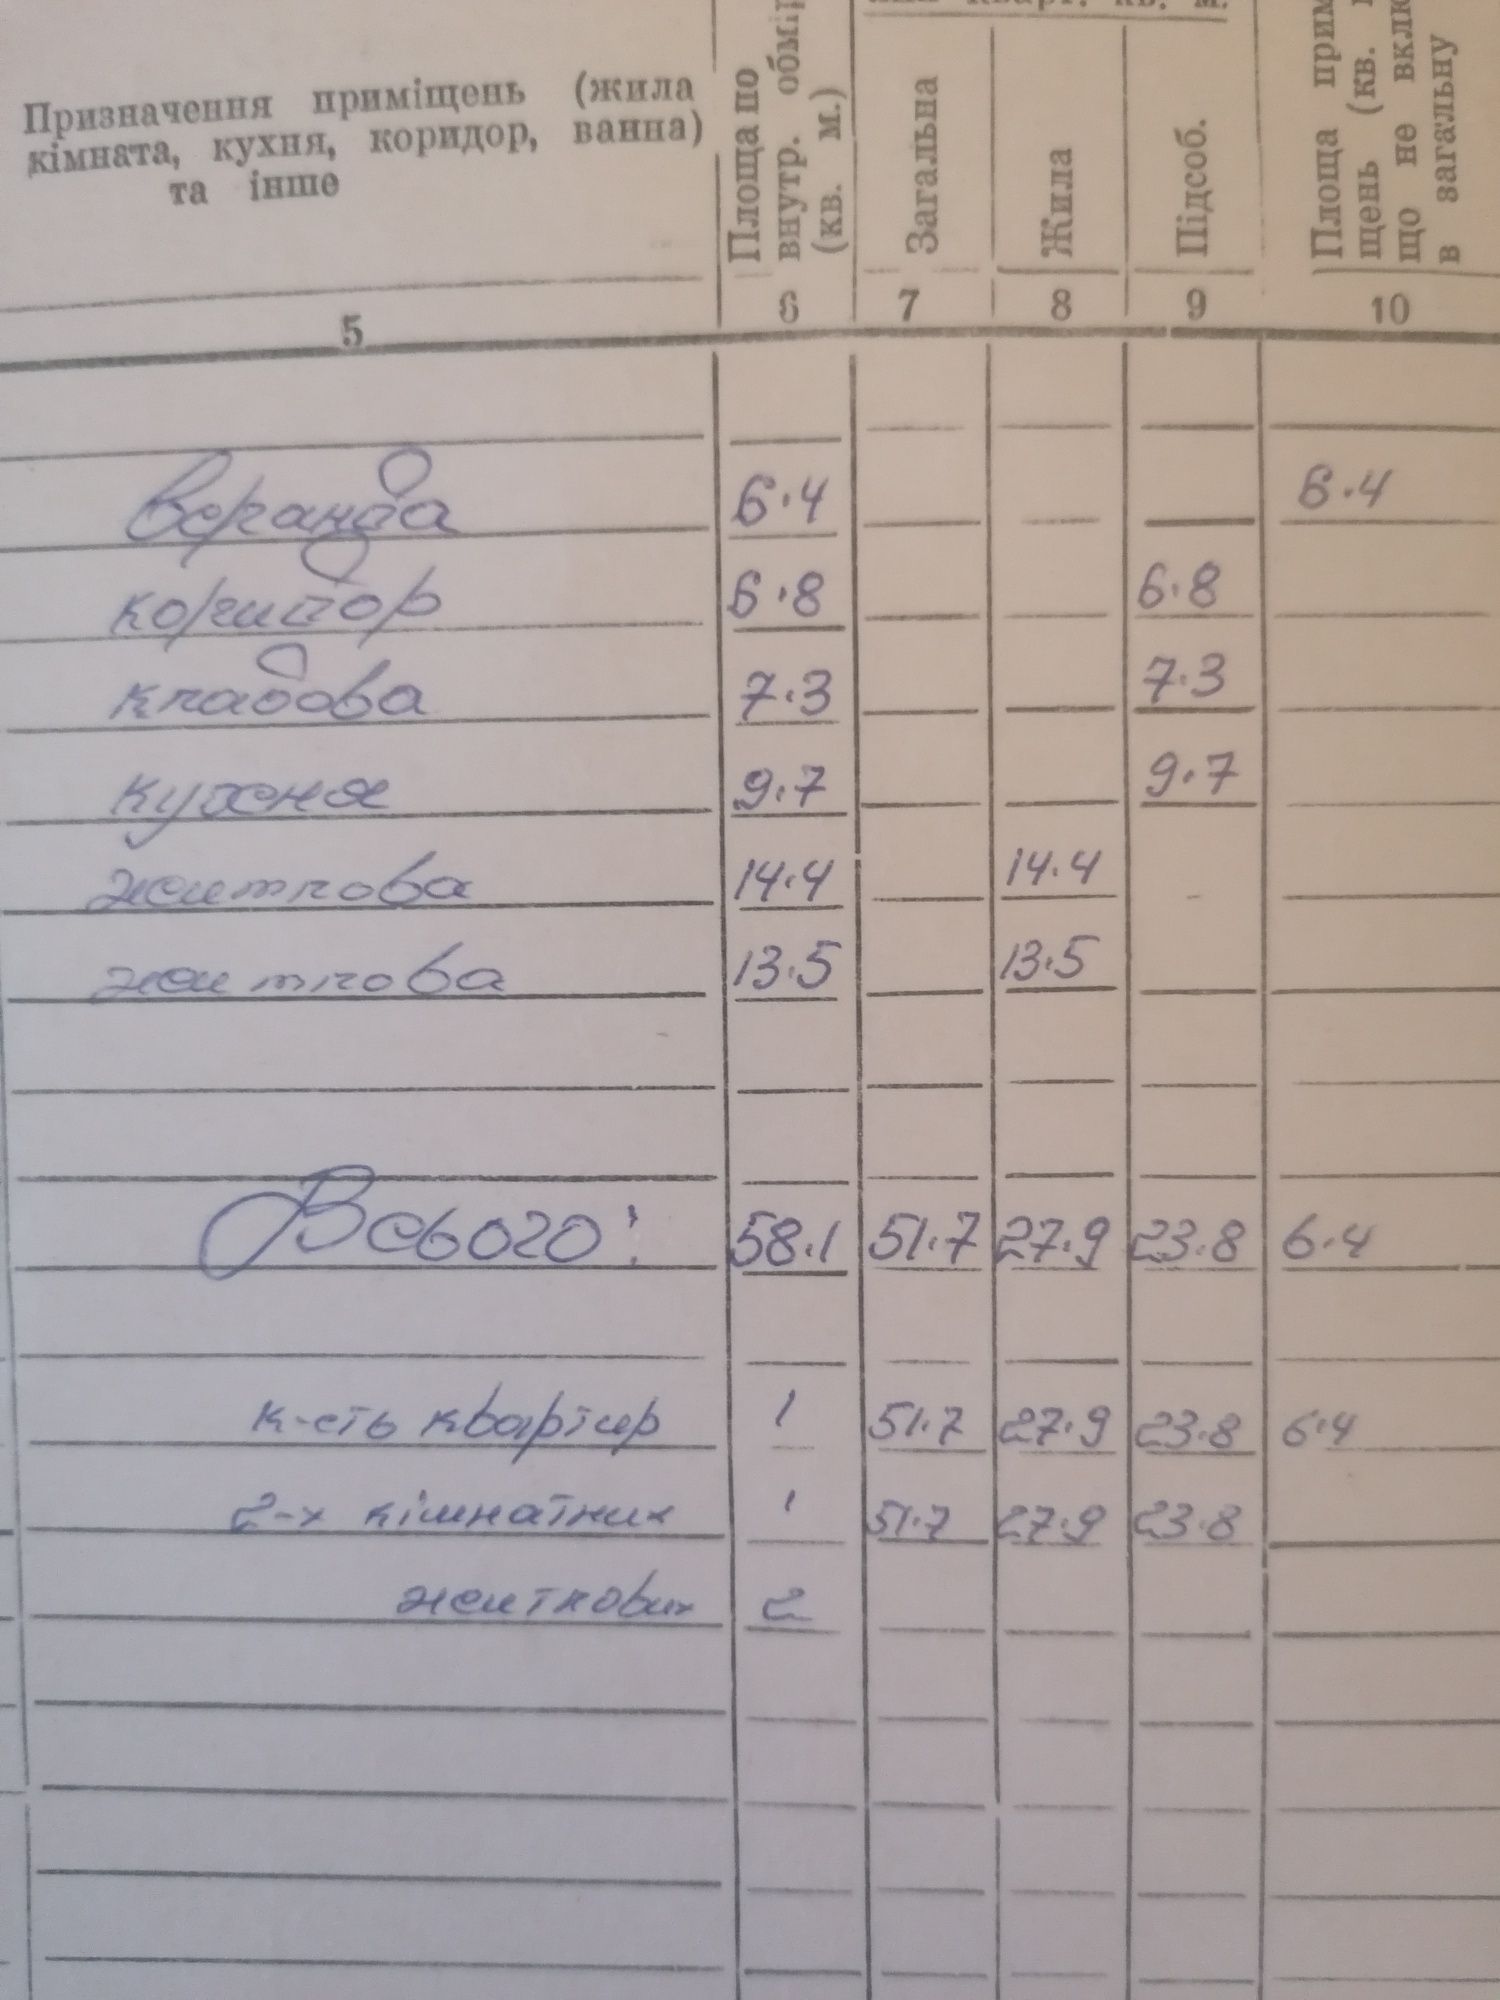 Призначення приміщень (жила
кімната, кухня, коридор, ванна)
та інше
Площа по
внутр. обмір
(кв. м.)
кварт. кв. м.
Загальна
Жила
Підсоб.
Площа прим
щень (кв.
що не вклю
в загальну
5 6 7 8 9 10
веранда 6.4 6.4
коридор 6.8 6.8
кладова 7.3 7.3
кухня 9.7 9.7
житлова 14.4 14.4
житлова 13.5 13.5
Всього: 58.1 51.7 27.9 23.8 6.4
к-сть квартир 1 51.7 27.9 23.8 6.4
2-х кімнатних 1 51.7 27.9 23.8
житлових 2